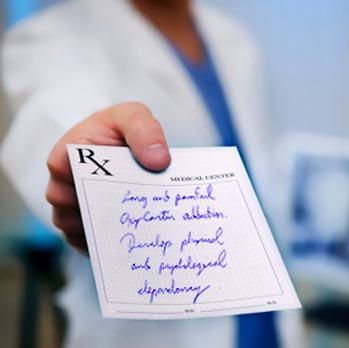 Rx
MEDICAL CENTER
Long and painful
OxyContin addiction.
Develop physical
and psychological
dependency
M.D. M.D.